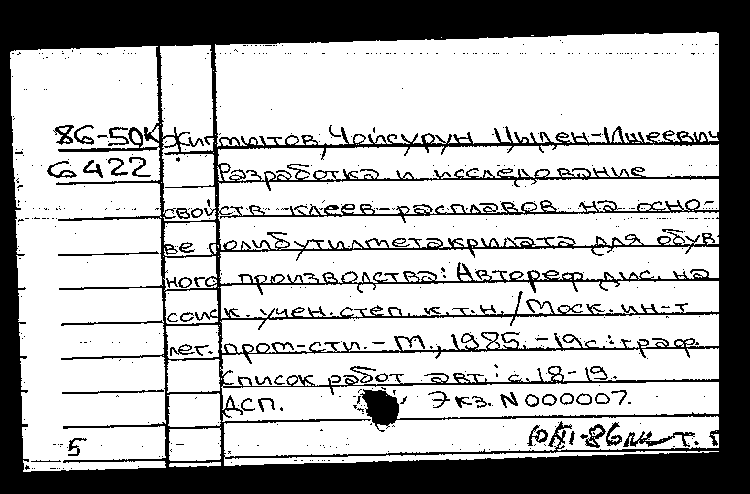 86-50К Жигмытов, Чойсурун Цыден-Ишеевич
6422 Разработка и исследование
свойств клеев-расплавов на осно-
ве полибутилметакрилата для обув
ного производства: Автореф. дис. на
соиск. учен. степ. к.т.н. / Моск. ин-т
лег. пром-сти. - М., 1985. - 19с.: граф.
Список работ авт.: с. 18-19.
ДСП. Экз. N 000007.
5